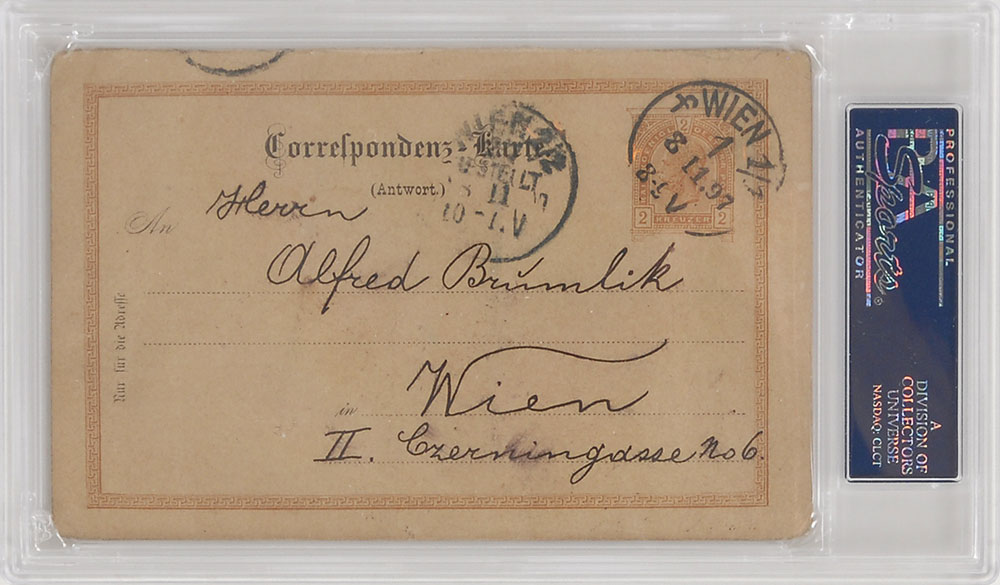 Correspondenz-Karte.
(Antwort.)
WIEN 1/1
8 11.97
8-9V
WIEN 2/2
BESTELLT
8 11
10-1.V
2
2 KREUZER 2
Herrn
An
Alfred Brumlik
Nur für die Adresse
in Wien
II. Czerningasse No 6.
PSA
Sports
PROFESSIONAL
AUTHENTICATOR
A
DIVISION OF
COLLECTORS
UNIVERSE
NASDAQ: CLCT